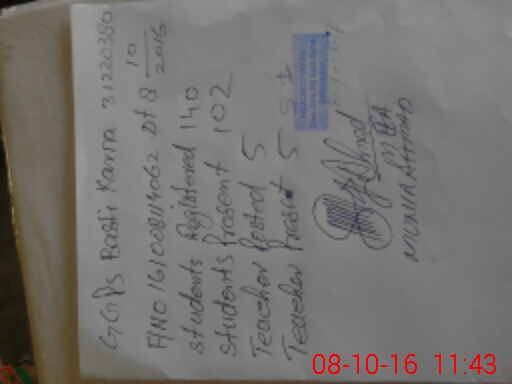 GGPS Basti Karra 31220380
F/NO 161008114062 Dt 8 10/2016
students Registered 140
students Present 102
Teacher Posted 5
Teacher Present 5
MEA
MUNIR AHMAD
08-10-16 11:43